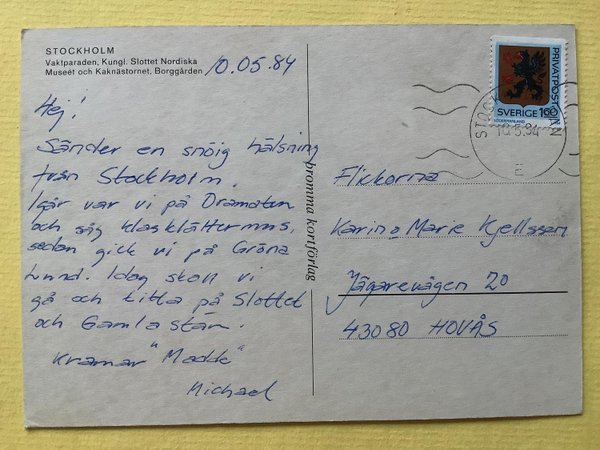 STOCKHOLM
Vaktparaden, Kungl. Slottet Nordiska
Museét och Kaknästornet, Borggården
10.05.84
Hej!
Sänder en snöig hälsning
från Stockholm.
Igår var vi på Dramaten
och såg klasklättermus,
sedan gick vi på Gröna
Lund. Idag skall vi
gå och titta på Slottet
och Gamla stan.
Kramar "Madde"
Michael
bromma kortförlag
PRIVATPOST
SVERIGE 160
SÖDERMANLAND
10.5.84
E
Flickorna
Karin o Marie Kjellsson
Jägarevägen 20
43080 HOVÅS